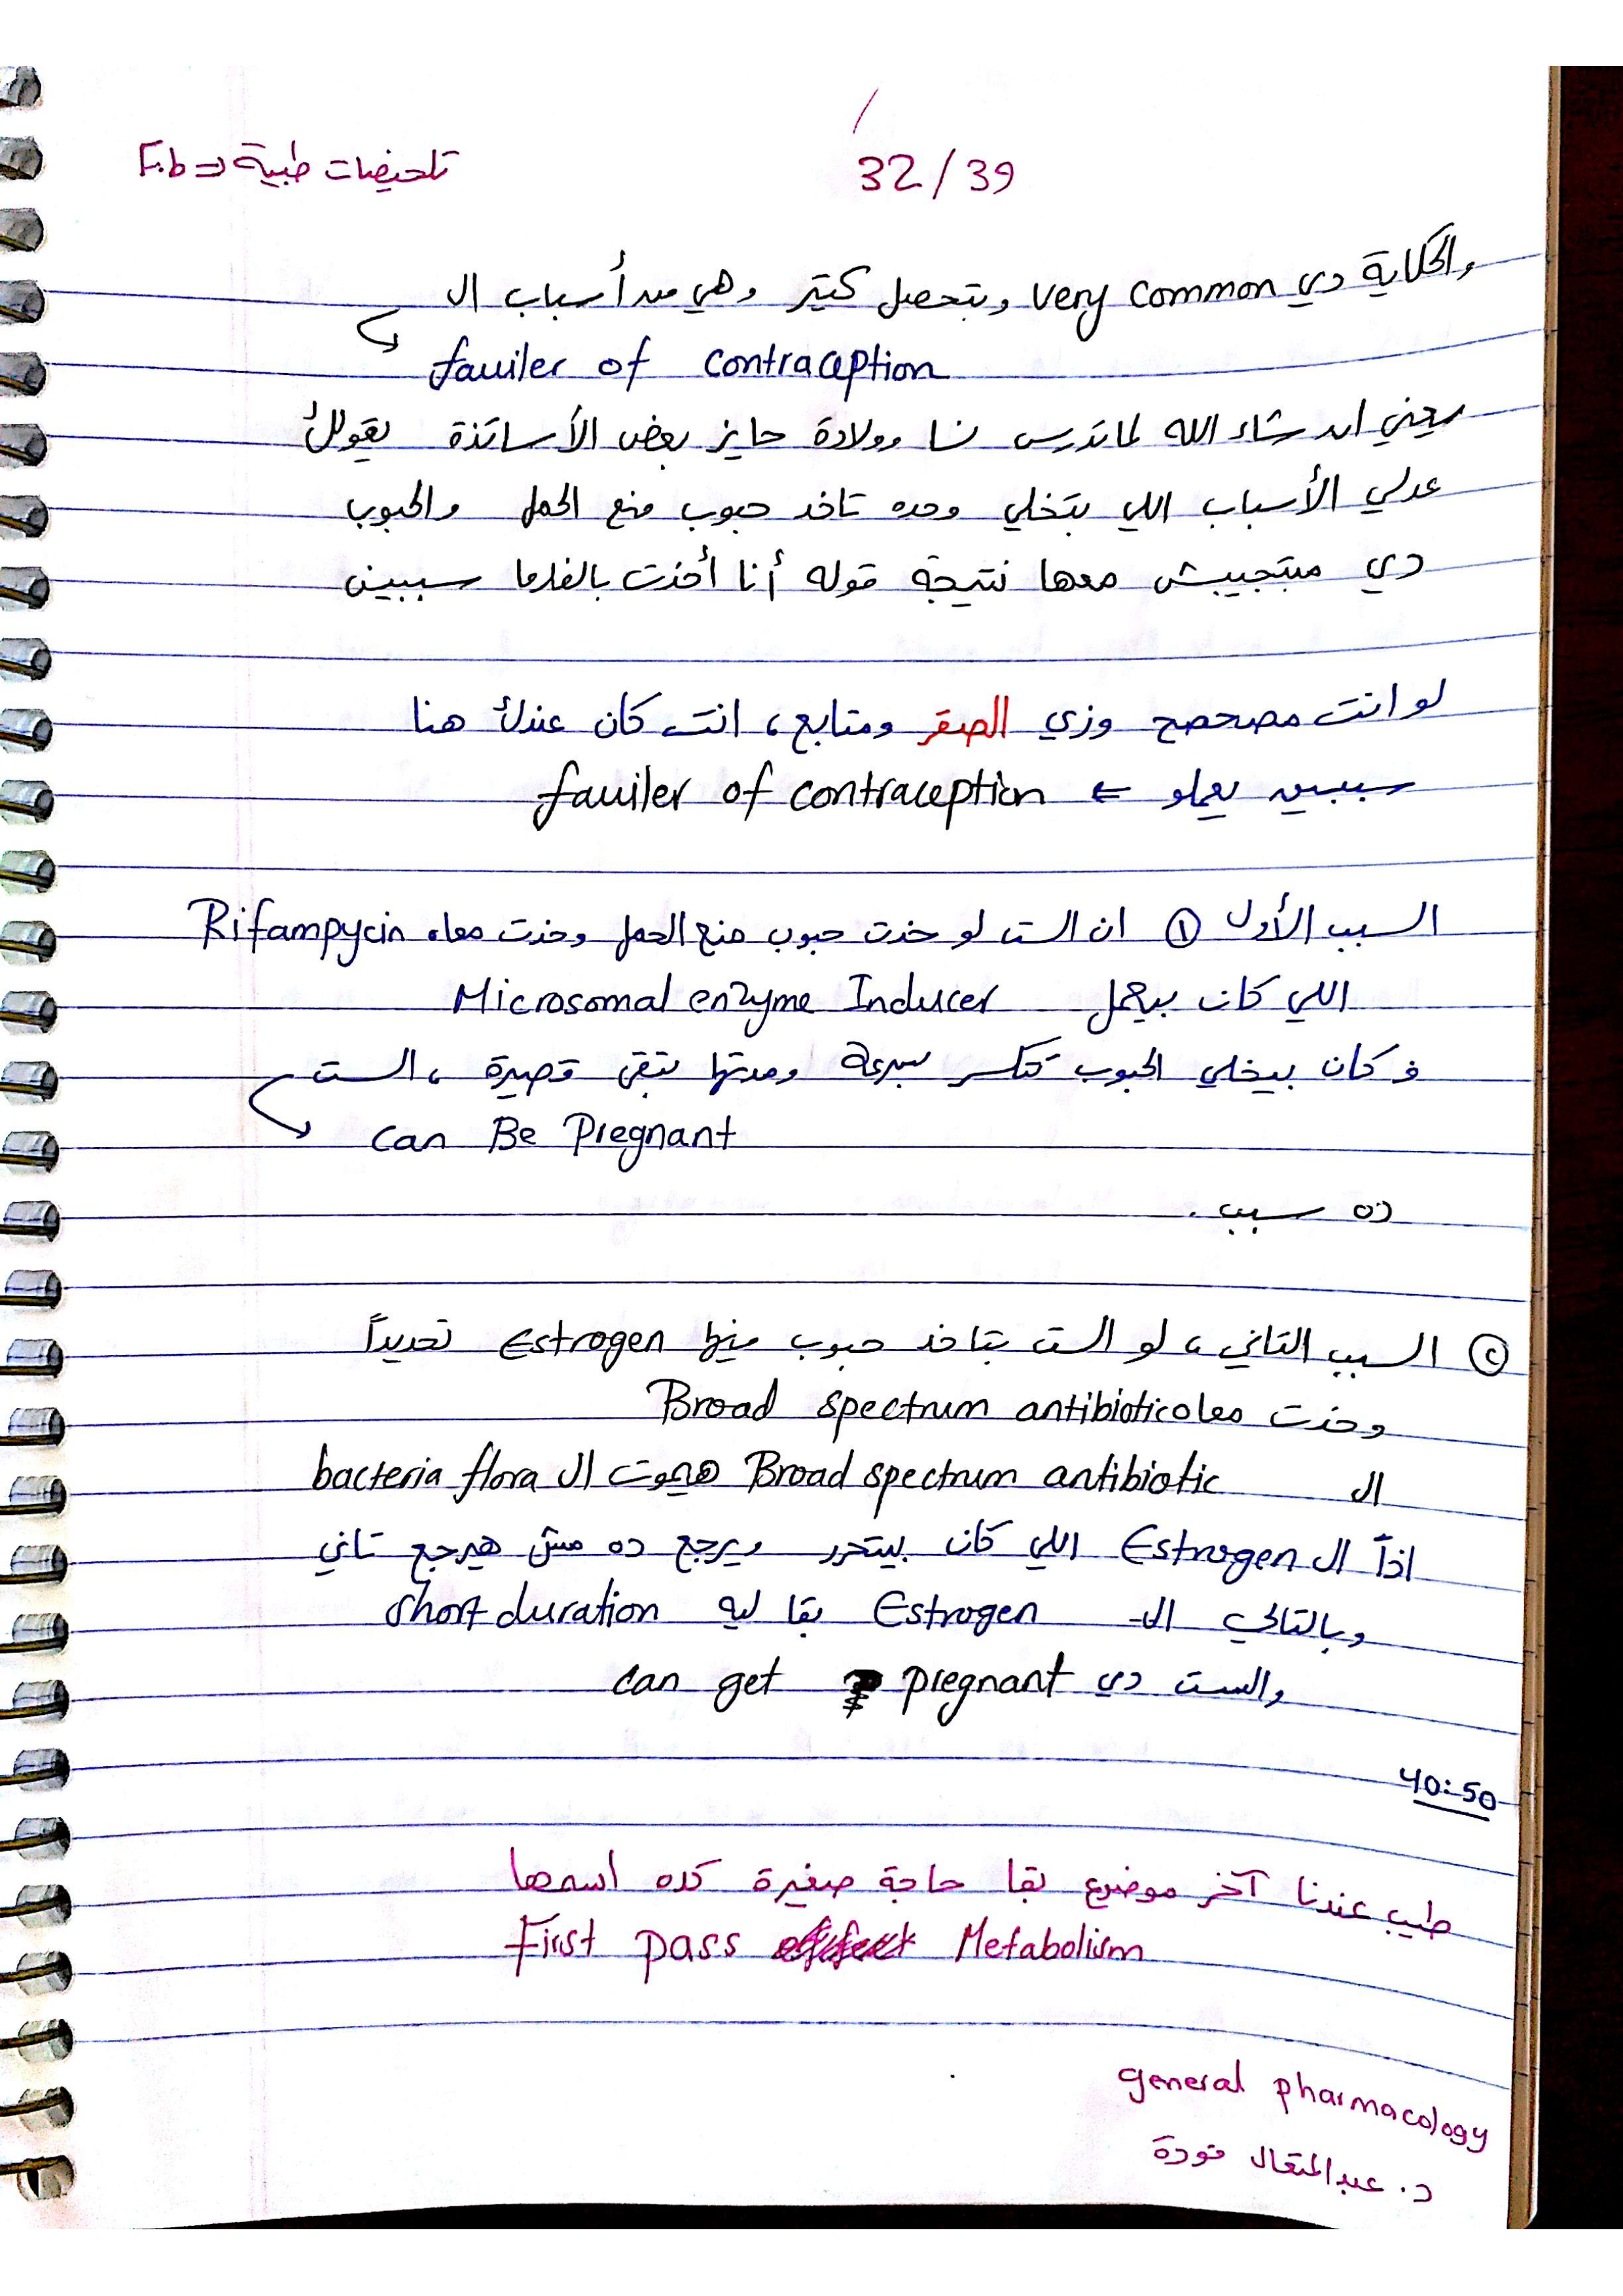 32/39
تلخيصات طبية => F.b
والحكاية دي very common وبتحصل كتير وهي من أسباب ال
fauiler of contraception
يعني ان شاء الله لما تدرس نسا وولادة حايز بعض الأساتذة يقولك
عدلي الأسباب اللي بتخلي وحده تاخد حبوب منع الحمل والحبوب
دي مبتجيبش معها نتيجة قوله أنا أخدت بالفارما سببين
لو انت مصحصح وزي الصقر ومتابع، انت كان عندك هنا
سببين يعملو ← fauiler of contraception
السبب الأول ① ان الست لو خدت حبوب منع الحمل وخدت معاه Rifampycin
اللي كان بيعمل Microsomal enzyme Inducer
فكان بيخلي الحبوب تتكسر بسرعة ومدتها تبقى قصيرة، الست
can Be Pregnant
ده سبب.
② السبب التاني، لو الست بتاخد حبوب فيها Estrogen تحديداً
وخدت معاه Broad spectrum antibiotic
ال Broad spectrum antibiotic هيموت ال bacteria flora
اذاً ال Estrogen اللي كان بيتحرر ويرجع ده مش هيرجع تاني
وبالتالي ال Estrogen بقا ليه short duration
والست دي can get pregnant
40:50
طيب عندنا آخر موضوع بقا حاجة صغيرة كده اسمها
First pass Metabolism
general pharmacology
د. عبدالمتعال فودة